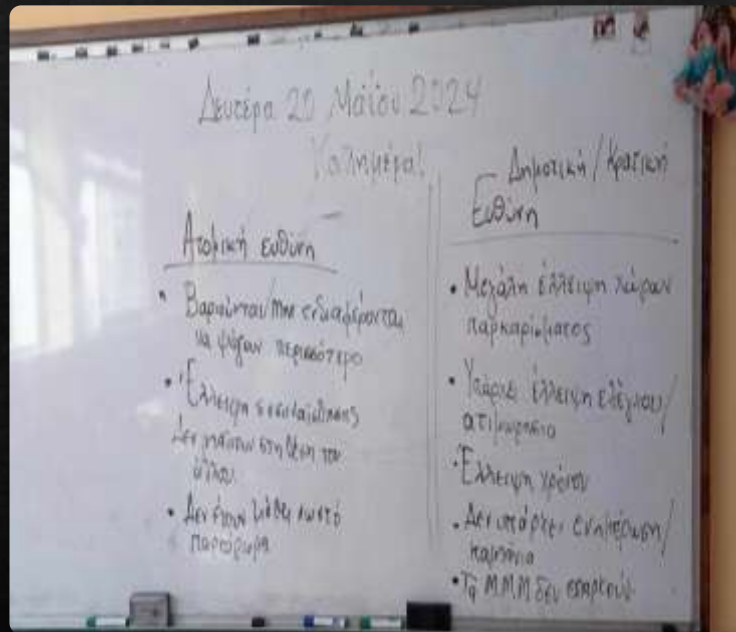 Δευτέρα 20 Μαΐου 2024
Καλημέρα!
Ατομική ευθύνη
• Βαριούνται/ ενδιαφέρονται
να ψάξουν περισσότερο
• Έλλειψη ενσυναίσθησης
Δεν μπαίνουν στη θέση του
άλλου
• Δεν έχουν μάθει σωστό
παρκάρισμα
Δημοτική/Κρατική
Ευθύνη
• Μεγάλη έλλειψη χώρων
παρκαρίσματος
• Υπάρχει έλλειψη ελέγχου/
ατιμωρησία
• Έλλειψη χρόνου
• Δεν υπάρχει ενημέρωση/
καμπάνια
• Τα ΜΜΜ δεν επαρκούν